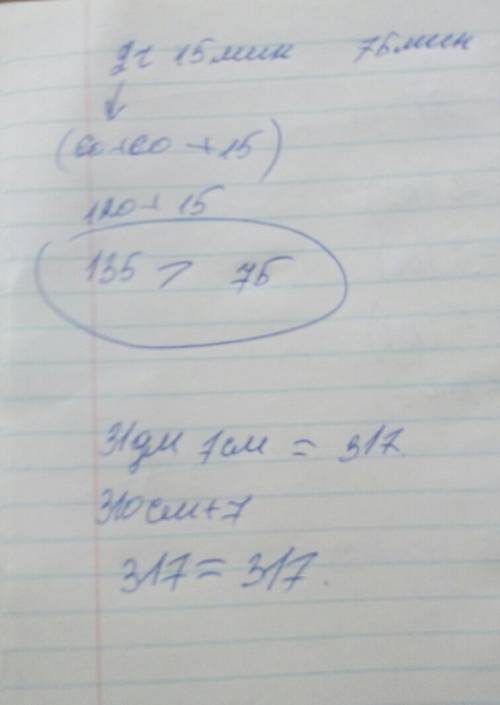 2ч 15мин 75мин
↓
(60+60+15)
120+15
135 > 75
31дм 7см = 317.
310см+7
317=317.